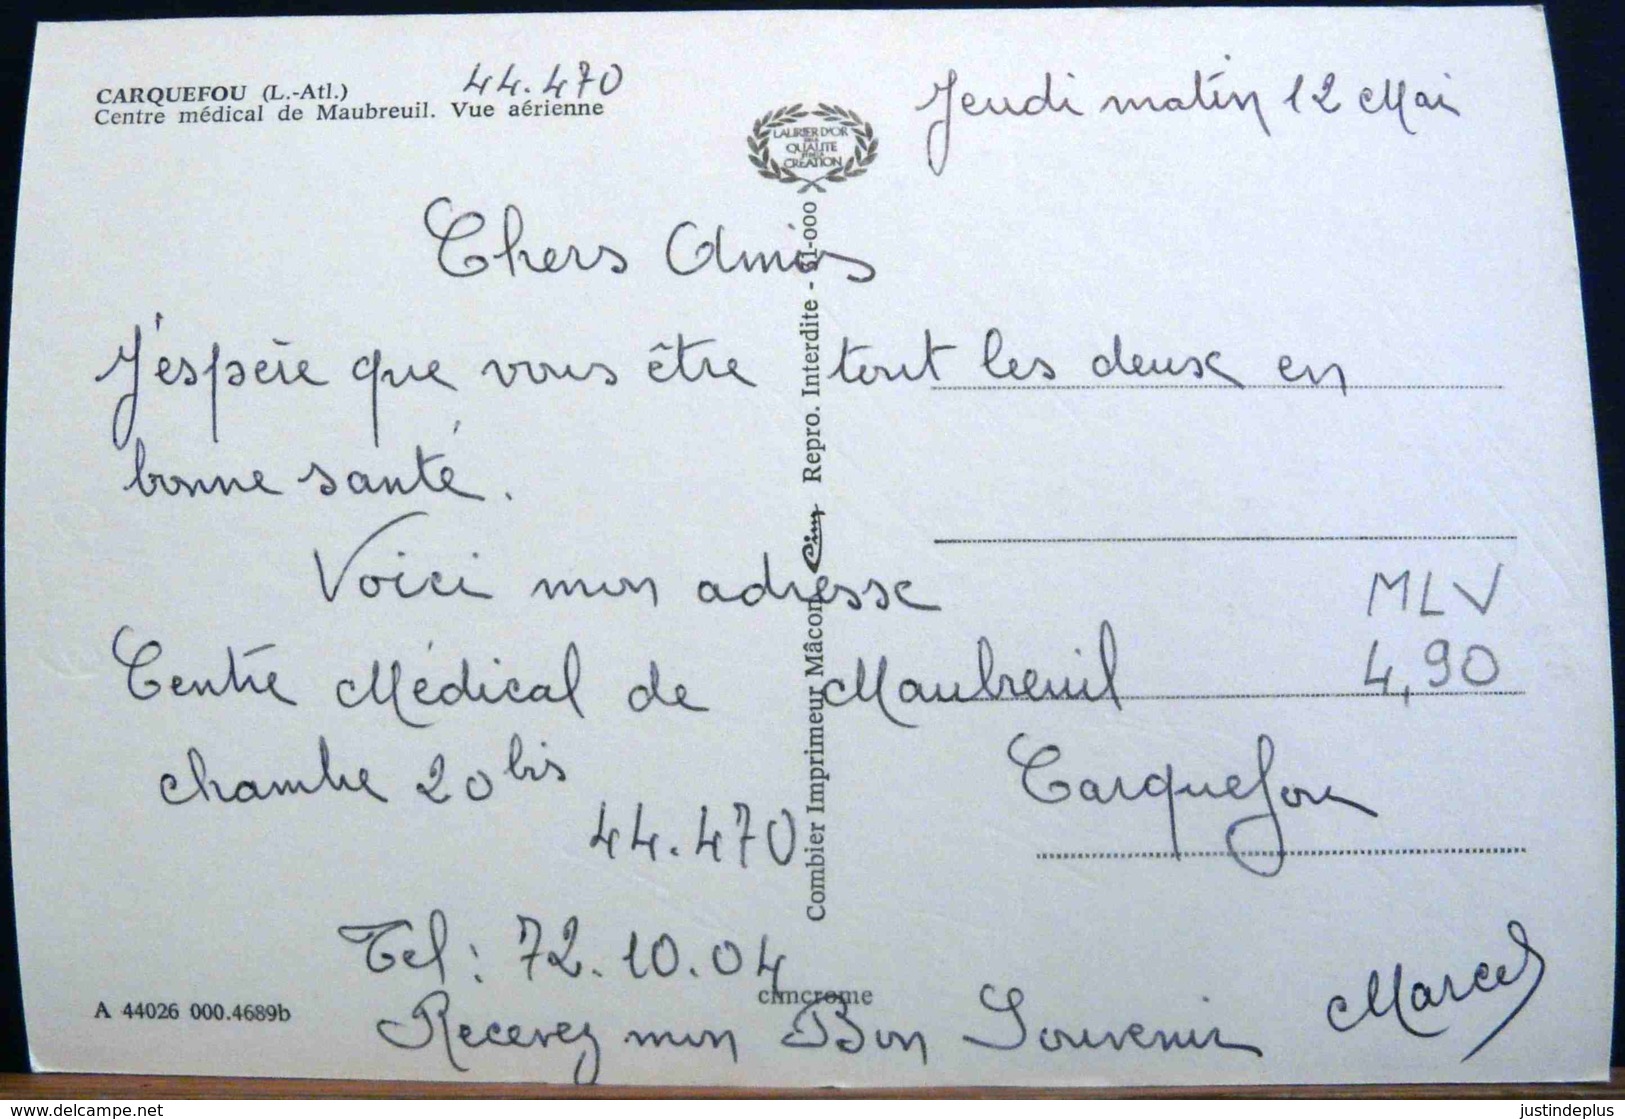 CARQUEFOU (L.-Atl.) 44.470
Centre médical de Maubreuil. Vue aérienne
LAURIER D'OR
DE LA
QUALITE
CREATION
Jeudi matin 12 Mai
Chers Amis
J'espère que vous être tout les deux en
bonne santé.
Voici mon adresse
Centre Médical de Maubreuil
chambre 20 bis
44.470
Carquefou
Tel : 72.10.04
Recevez mon Bon Souvenir
Marcel
MLV
4,90
Combier Imprimeur Mâcon Cim Repro. Interdite - 61-000
cimcrome
A 44026 000.4689b
www.delcampe.net
justindeplus